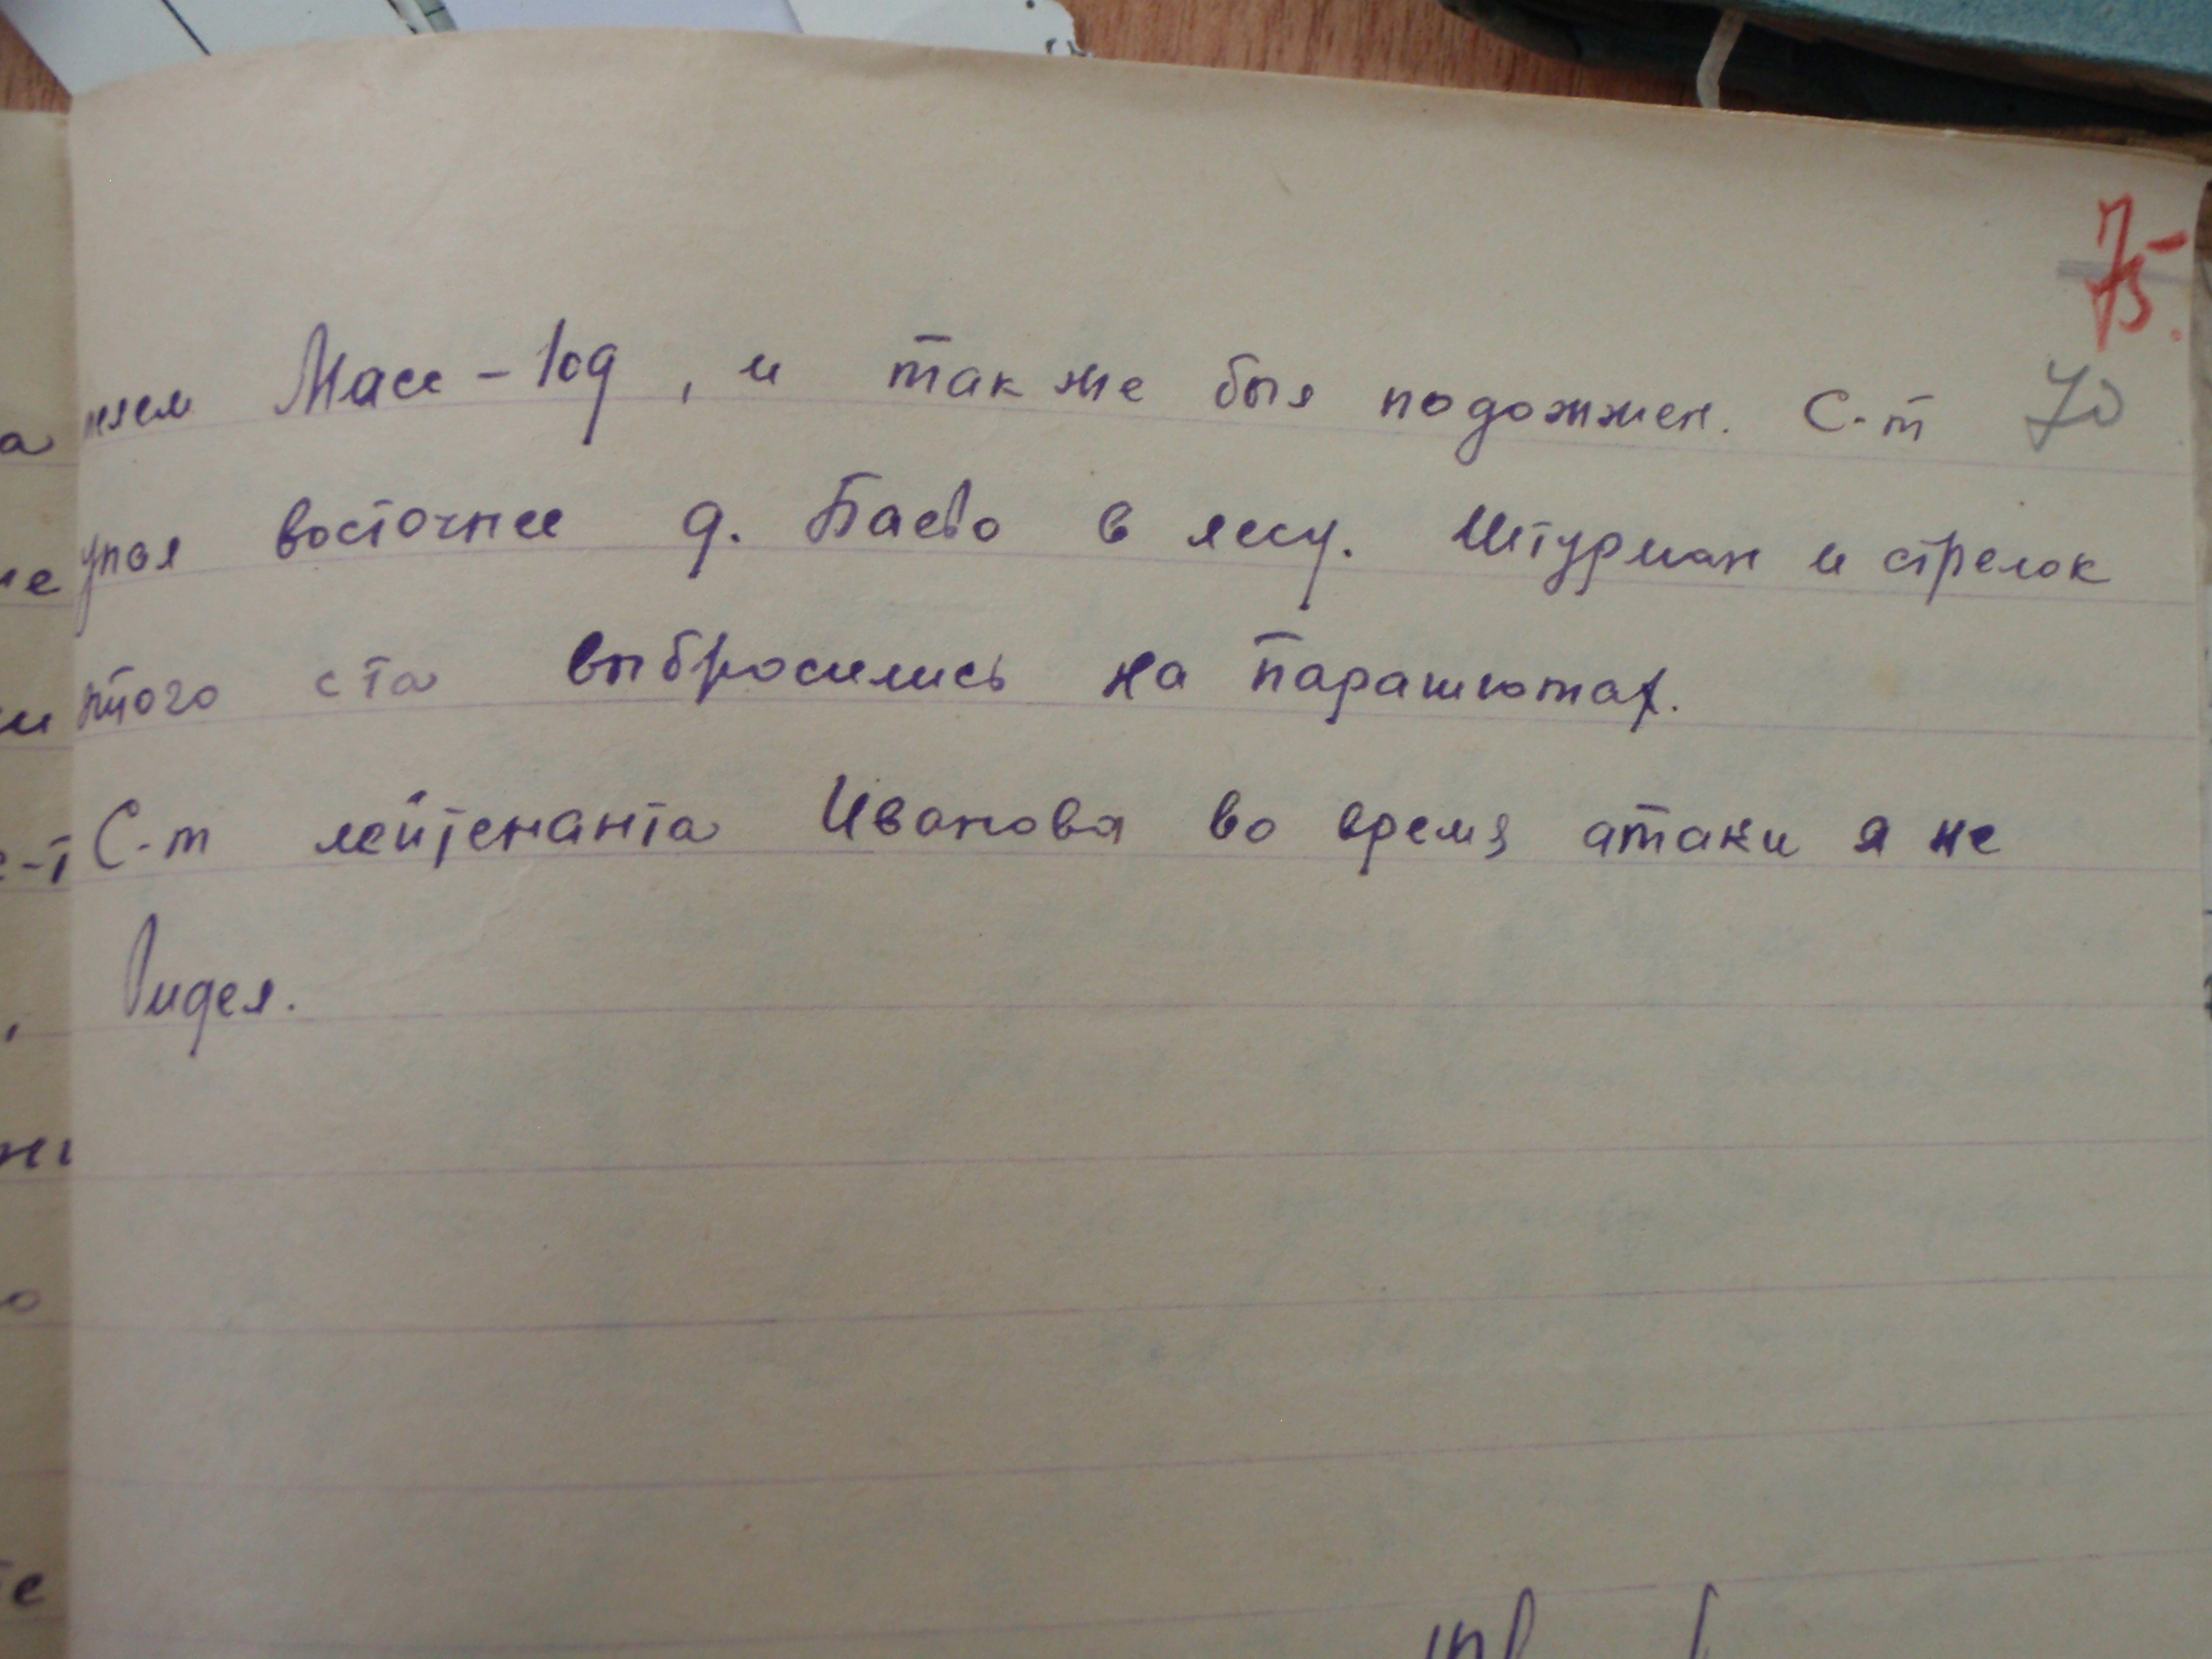 75.
нял Масс-109, и также был подожжен. С-т 70
упал восточнее д. Баево в лесу. Штурман и стрелок
этого с-та выбросились на парашютах.
С-т лейтенанта Иванова во время атаки я не
видел.